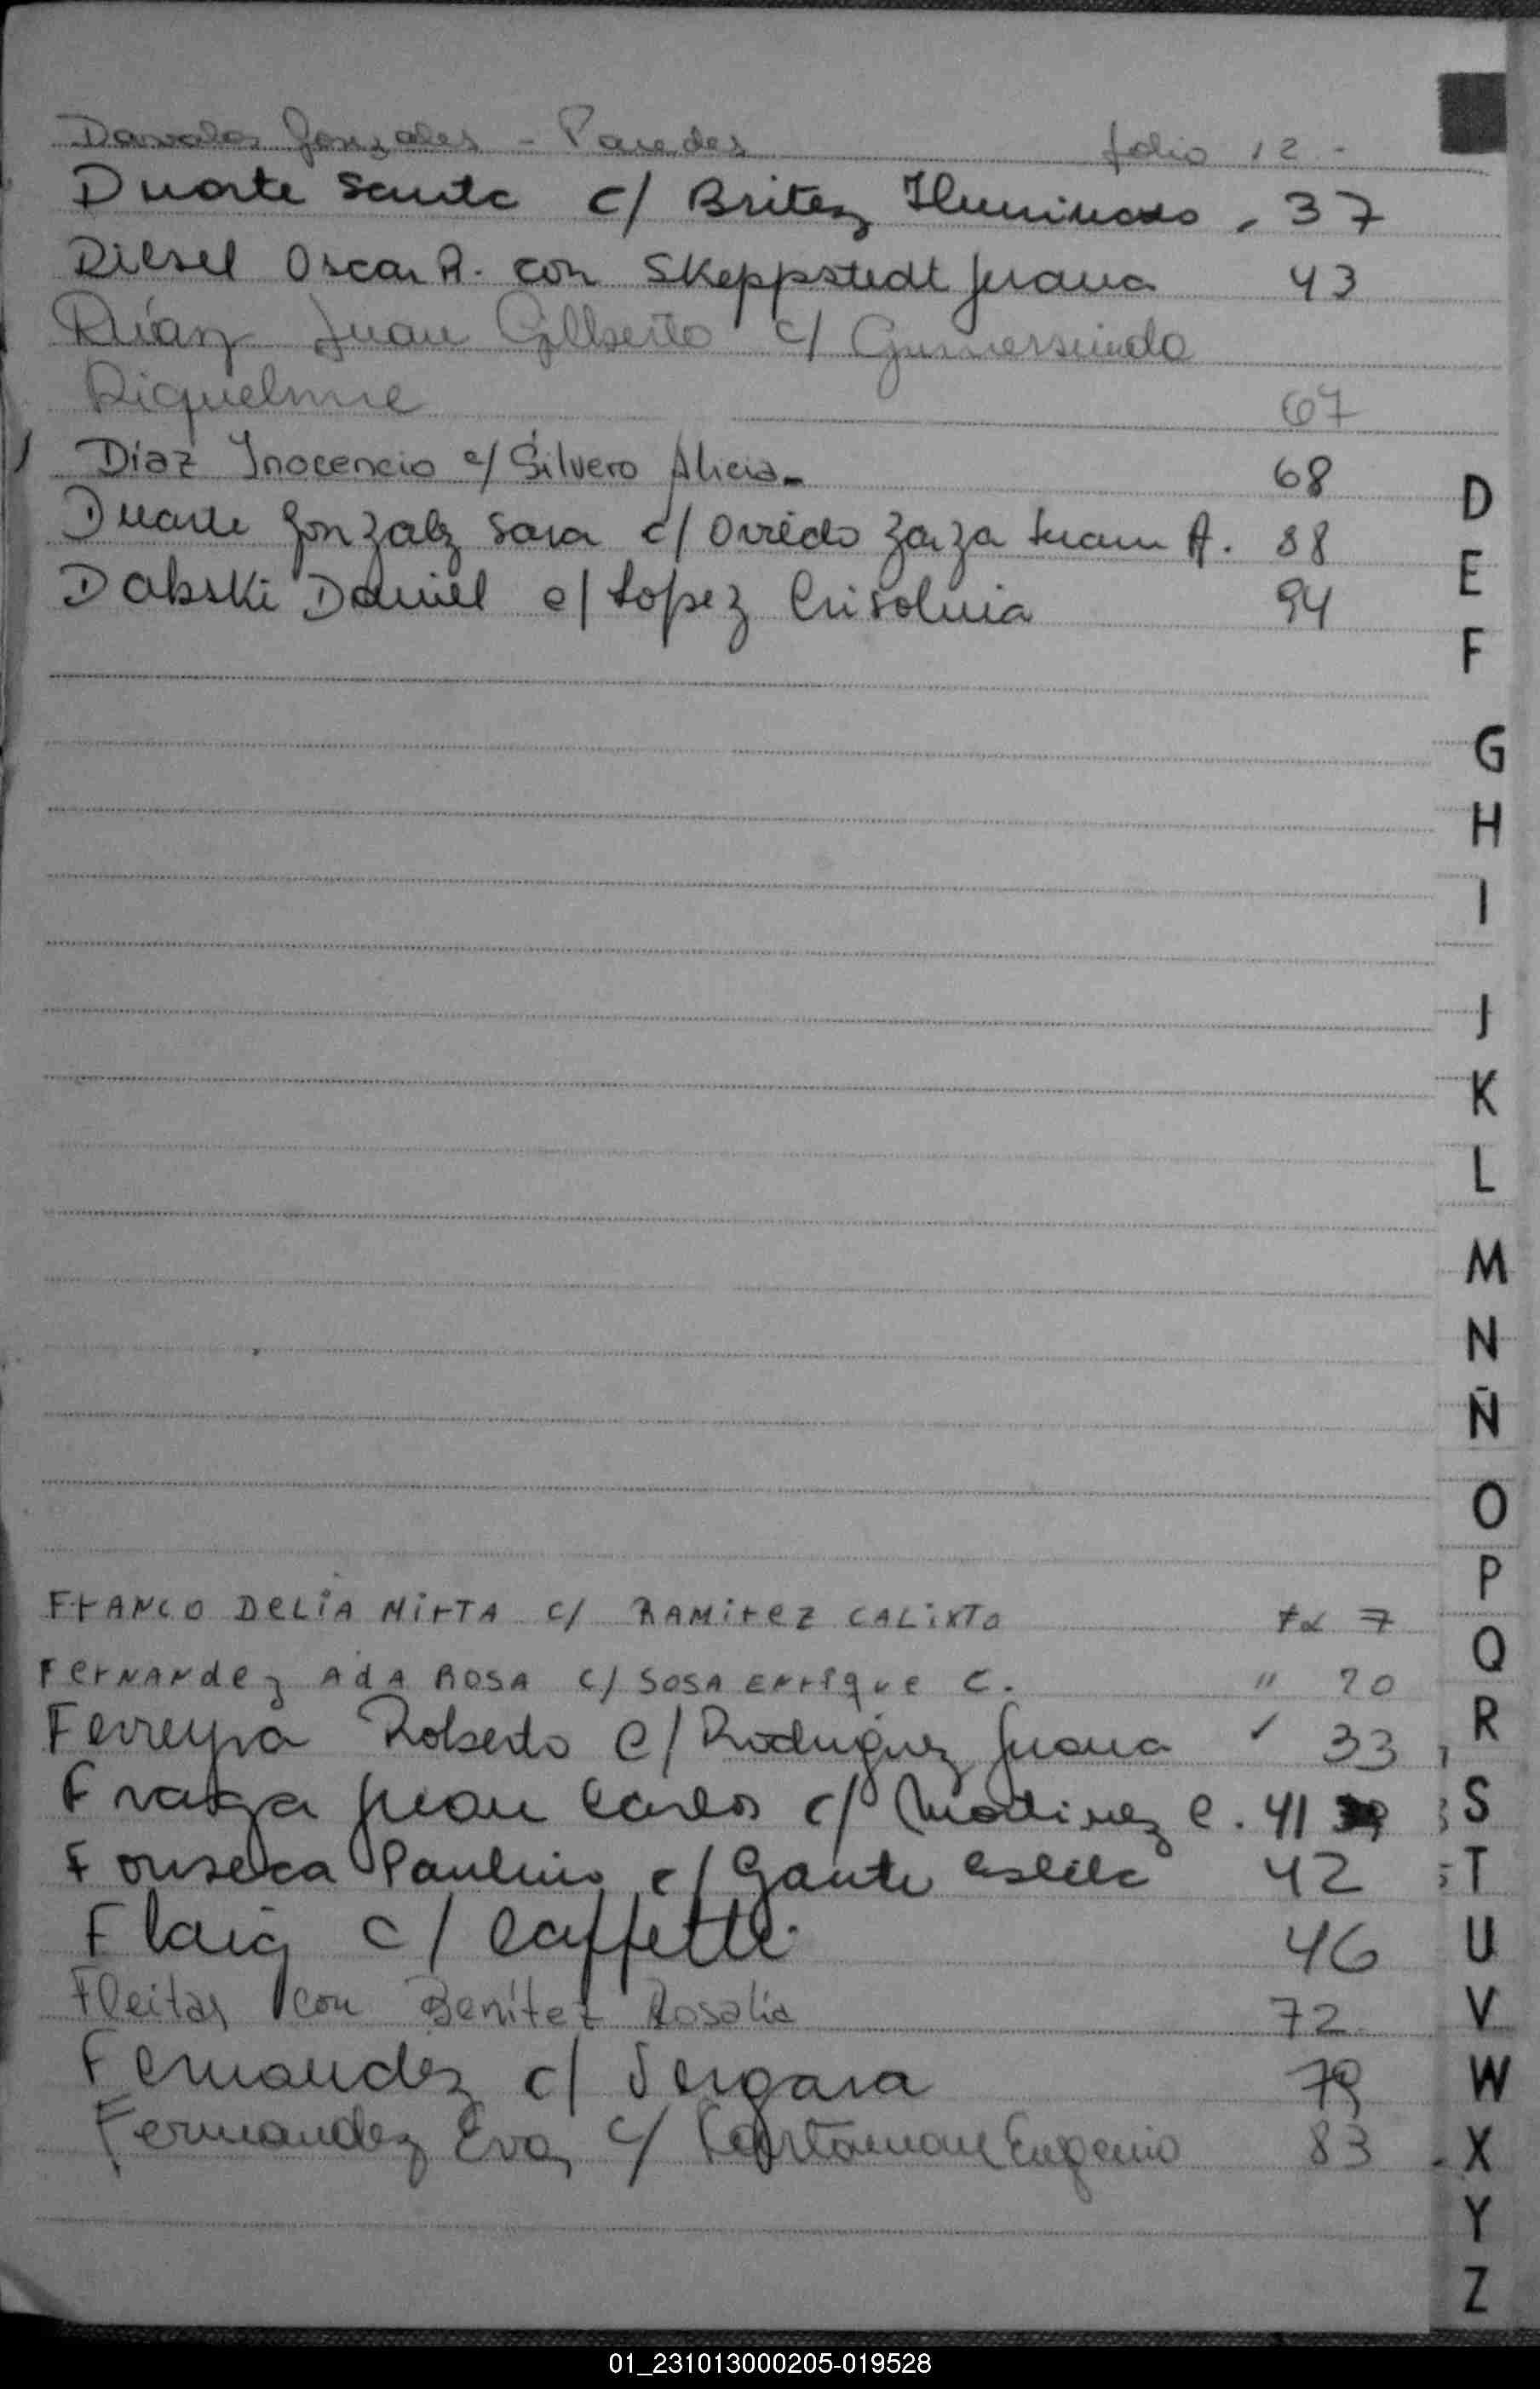 Davalos Gonzales - Paredes folio 12 -
Duarte Santa c/ Britez Iluminado . 37
Diesel Oscar R. con Skeppstedt Juana 43
Díaz Juan Gilberto c/ Gumersinda
Riquelme 67
Díaz Inocencio c/ Silvero Alicia - 68
Duarte Gonzalez Sara c/ Oviedo Zarza Juan A. 88
Dabski Daniel c/ Lopez Crisolina 94
D
E
F
G
H
I
J
K
L
M
N
Ñ
O
P
Q
R
S
T
U
V
W
X
Y
Z
FrANCO DeLiA MirTA c/ RAMireZ CALiXTO 7
FerNANdez AdA ROSA c/ SOSA ENrique C. " 20
Ferreyra Roberto c/ Rodriguez Juana 33
Fraga Juan Carlos c/ Martinez C. 41
Fonseca Paulino c/ Gante 42
Flaig c/ Caffetti 46
Fleitas con Benítez Rosalia 72
Fernandez c/ Vergara 79
Fernandez Eva c/ Eugenio 83
01_231013000205-019528